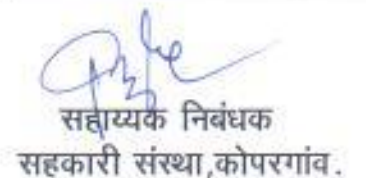 सहाय्यक निबंधक
सहकारी संस्था,कोपरगांव.